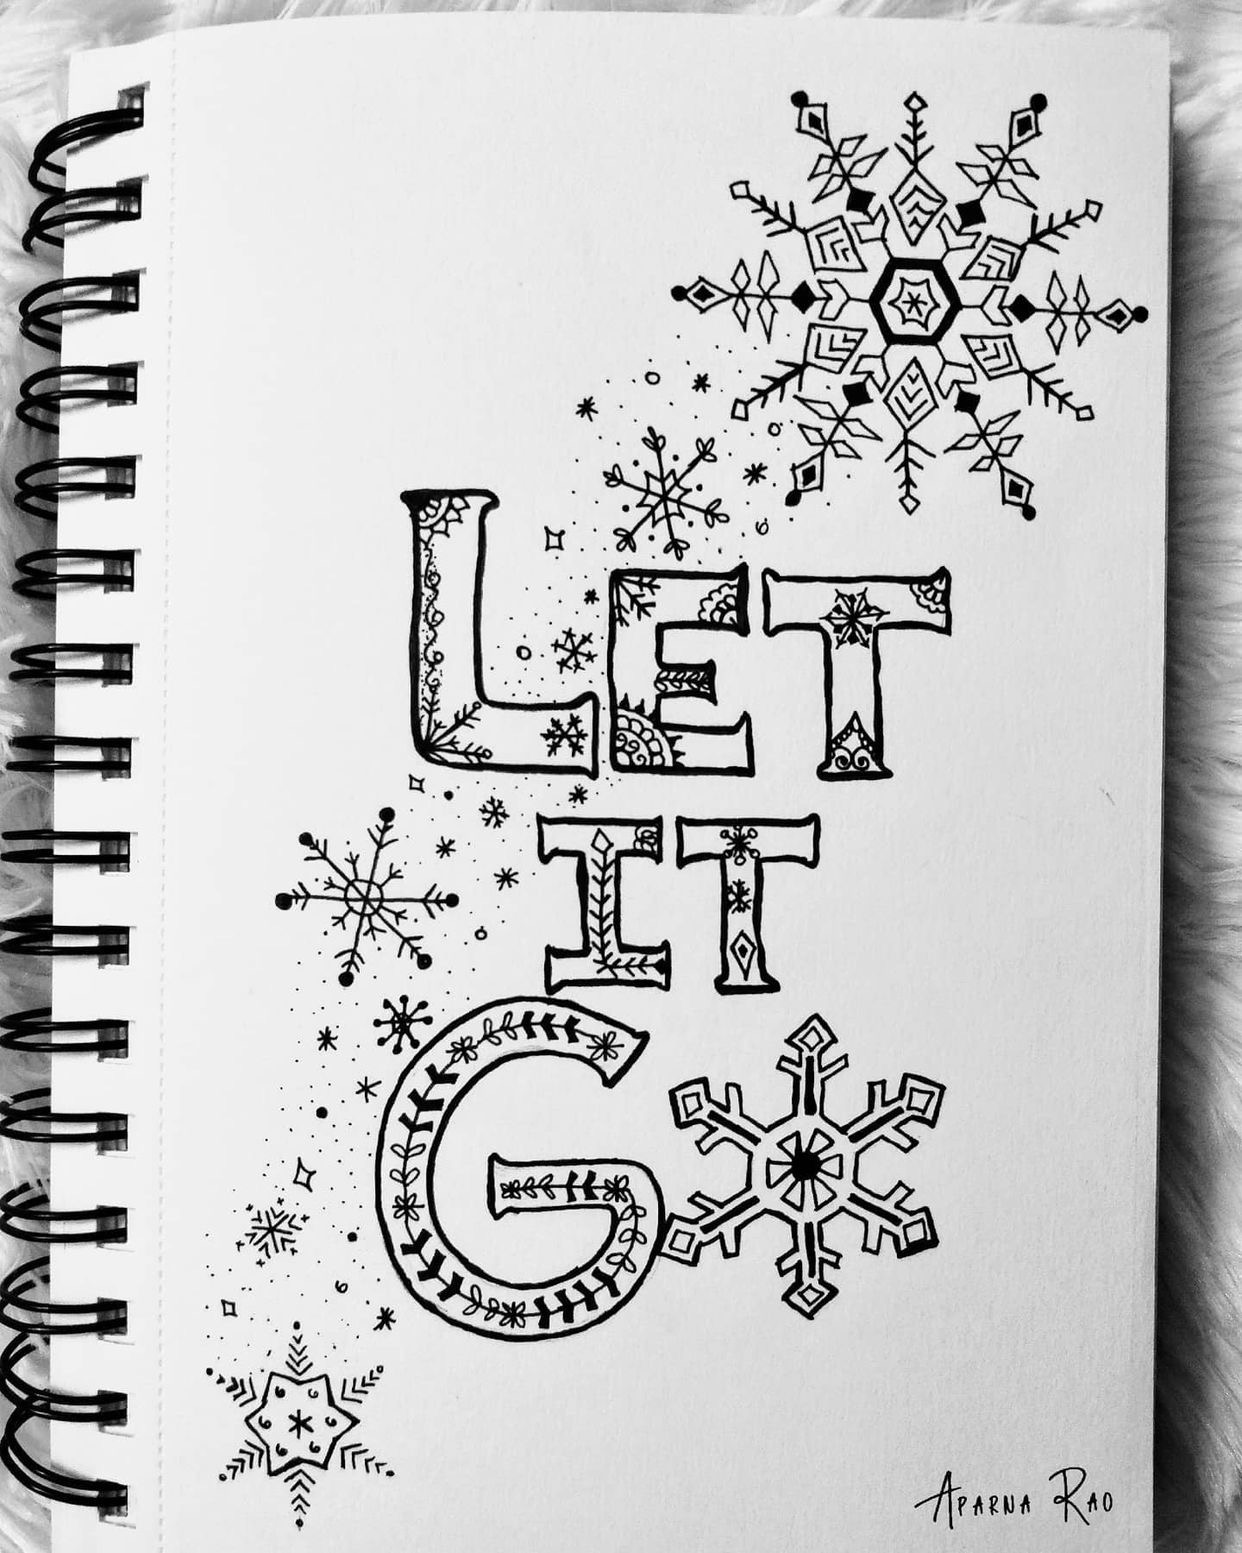 LET
IT
GO
APARNA RAO